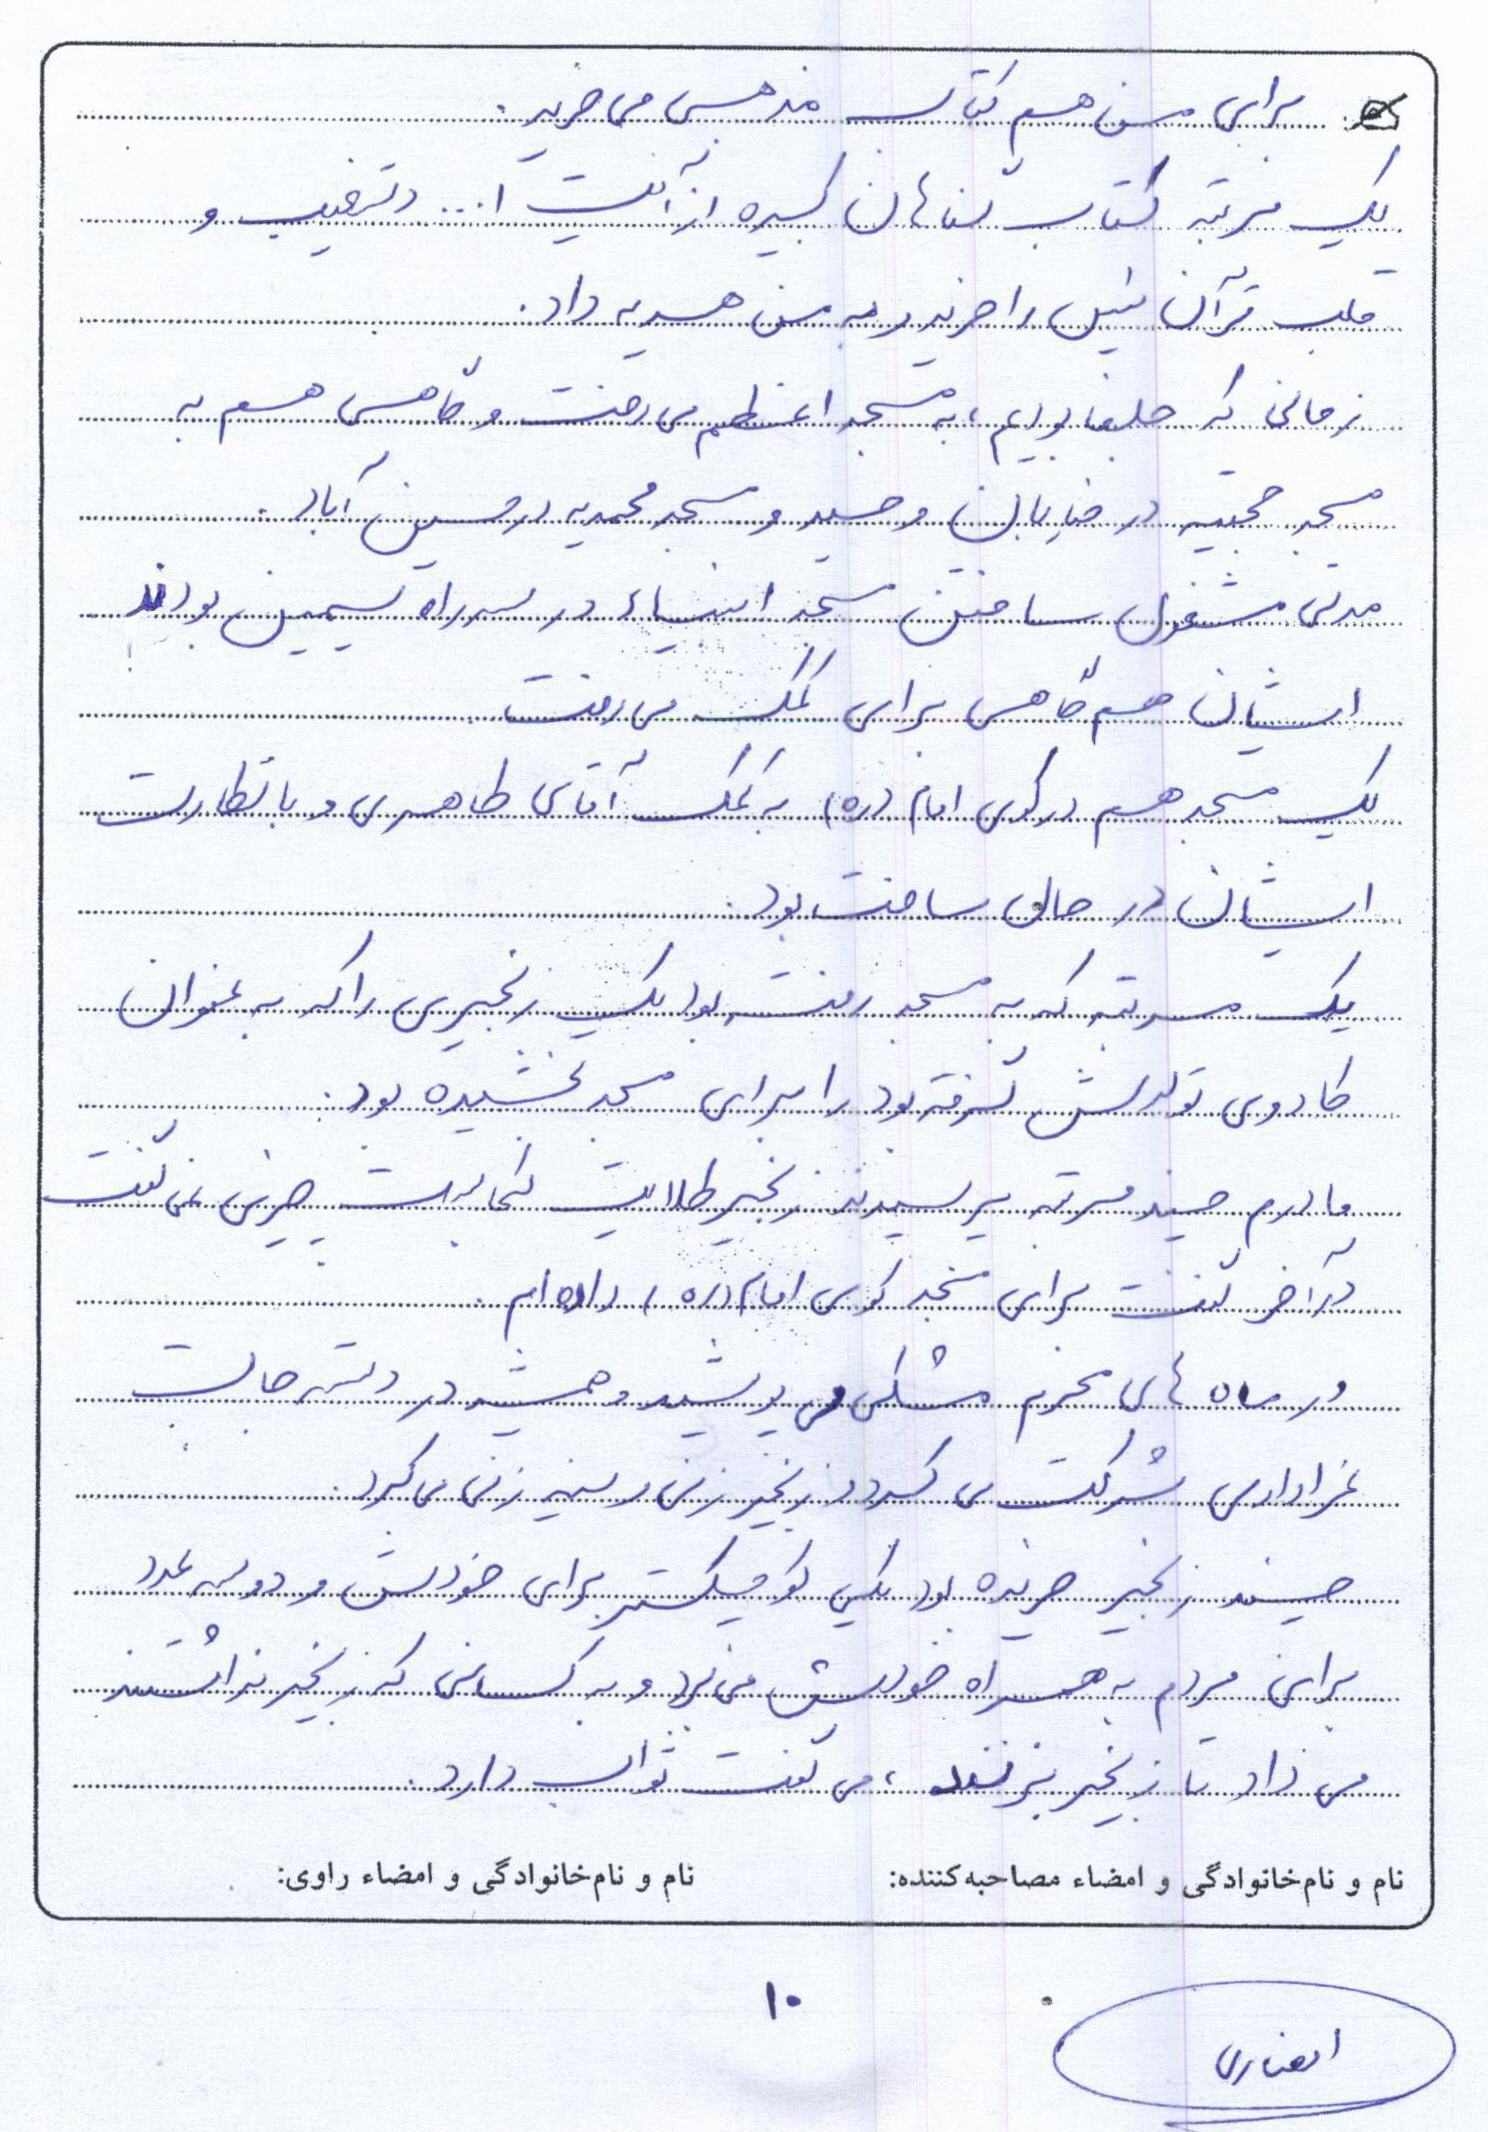 برای من هم کتاب مذهبی می خرید.
یک مرتبه کتاب گناهان کبیره از آیت ا... دستغیب و
قلب قرآن ایشان را خرید و به من هدیه داد.
زمانی که جلفا بودیم، به مسجد اعظم می رفت و گاهی هم به
مسجد حجتیه در خیابان وحید و مسجد محمدیه در حسین آباد.
مدتی مشغول ساختن مسجد انبیاء در سه راه سیمین بودند
ایشان هم گاهی برای کمک می رفت
یک مسجد هم در کوی امام (ره) به کمک آقای طاهری و با نظارت
ایشان در حال ساخت بود.
یک مرتبه که به مسجد رفته بود یک زنجیری را که به عنوان
کادوی تولدش گرفته بود را برای مسجد بخشیده بود.
مادرم چند مرتبه پرسیدند زنجیر طلایت کجاست چیزی نمی گفت
در آخر گفت برای مسجد کوی امام (ره) داده ام.
در ماه های محرم مشکی می پوشید و همیشه در دسته جات
عزاداری شرکت می کرد و زنجیر زنی و سینه زنی می کرد.
چند زنجیر خریده بود یکی کوچکتر برای خودش و دو سه عدد
برای مردم به همراه خودش می برد و به کسانی که زنجیر نداشتند
می داد تا زنجیر بزنند، می گفت ثواب دارد.
نام و نام‌خانوادگی و امضاء مصاحبه‌کننده: نام و نام‌خانوادگی و امضاء راوی:
۱۰
انصاری